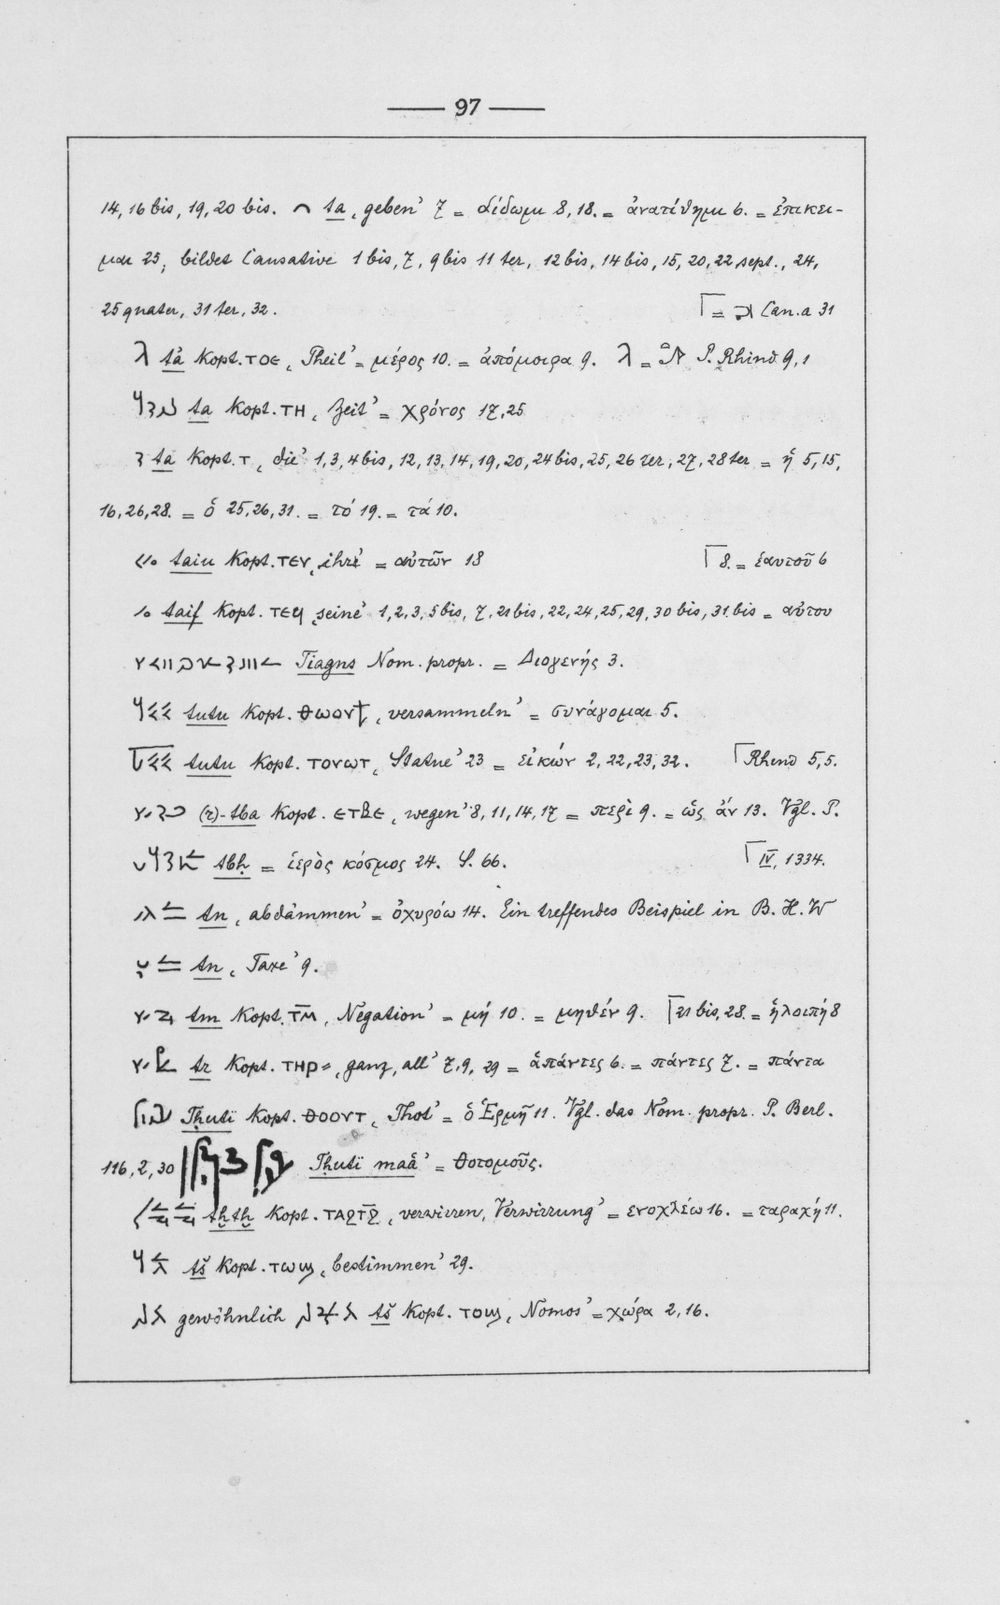 97
14, 16 bis, 19, 20 bis. ta ‚geben’ 7 = δίδωμι 8, 18. = ἀνατίθημι 6. = ἐπικει-
μαι 25; bildet Causative 1 bis, 7, 9 bis 11 ter, 12 bis, 14 bis, 15, 20, 22 sept., 24,
25 quater, 31 ter, 32. = Can. a 31
tȧ Kopt. ⲧⲟⲉ ‚Theil’ = μέρος 10. = ἀπόμοιρα 9. = P. Rhind 9, 1
ta Kopt. ⲧⲏ ‚Zeit’ = χρόνος 17, 25
ta Kopt. ⲧ ‚die’ 1, 3, 4 bis, 12, 13, 14, 19, 20, 24 bis, 25, 26 ter, 27, 28 ter = ἡ 5, 15,
16, 26, 28. = ὁ 25, 26, 31. = τό 19. = τά 10.
taiu Kopt. ⲧⲉⲩ ‚ihre’ = αὐτῶν 18 8. = ἑαυτοῦ 6
taif Kopt. ⲧⲉϥ ‚seine’ 1, 2, 3, 5 bis, 7, 21 bis, 22, 24, 25, 29, 30 bis, 31 bis = αὐτου
Tiagns Nom. propr. = Διογενής 3.
tutu Kopt. ⲑⲱⲟⲩϯ ‚versammeln’ = συνάγομαι 5.
tutu Kopt. ⲧⲟⲩⲱⲧ ‚Statue’ 23 = εἰκών 2, 22, 23, 32. Rhind 5, 5.
(r)-tba Kopt. ⲉⲧⲃⲉ ‚wegen’ 8, 11, 14, 17 = περὶ 9. = ὡς ἄν 13. Vgl. P.
tbḥ = ἱερὸς κόσμος 24. S. 66. IV, 1334.
tn ‚abdämmen’ = ὀχυρόω 14. Ein treffendes Beispiel in B. H. W
tn ‚Taxe’ 9.
tm Kopt. ⲧ̄ⲙ̄ ‚Negation’ = μή 10. = μηθέν 9. 21 bis, 28. = ἡ λοιπή 8
tr Kopt. ⲧⲏⲣ⸗ ‚ganz, all’ 7, 9, 29 = ἁπάντες 6. = πάντες 7. = πάντα
Tḥuti Kopt. ⲑⲟⲟⲩⲧ ‚Thot’ = ὁ Ἑρμῆ 11. Vgl. das Nom. propr. P. Berl.
116, 2, 30 Tḥuti maȧ’ = Θοτομοῦς.
tḫtḫ Kopt. ⲧⲁϩⲧϩ̄ ‚verwirren, Verwirrung’ = ενοχλέω 16. = ταραχή 11.
tš Kopt. ⲧⲱϣ ‚bestimmen’ 29.
gewöhnlich tš Kopt. ⲧⲟϣ ‚Nomos’ = χώρα 2, 16.